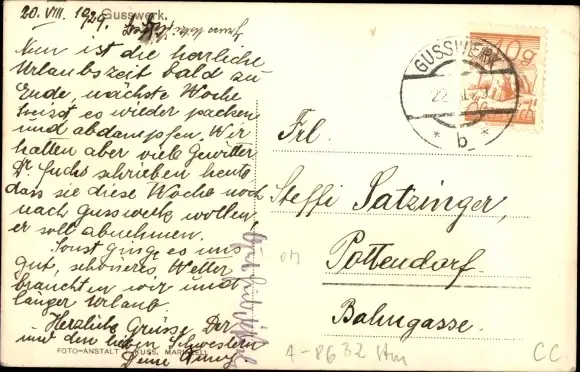 20. VIII. 1929.
Gusswerk.
Nun ist die herrliche
Urlaubszeit bald zu
Ende, nächste Woche
heisst es wieder packen
und abdampfen. Wir
hatten aber viele Gewitter
Dr Fuchs schrieben heute
dass sie diese Woche noch
nach Gusswerk wollen,
er soll abnehmen.
Sonst ginge es uns
gut, schöneres Wetter
brauchten wir und
länger Urlaub.
Herzliche Grüsse Dir
und den lieben Schwestern
Deine
FOTO-ANSTALT KUSS, MARIAZELL
GUSSWERK
22
* b *
10 g
Frl.
Steffi Satzinger,
Pottendorf.
Bahngasse.
4-8632
CC.